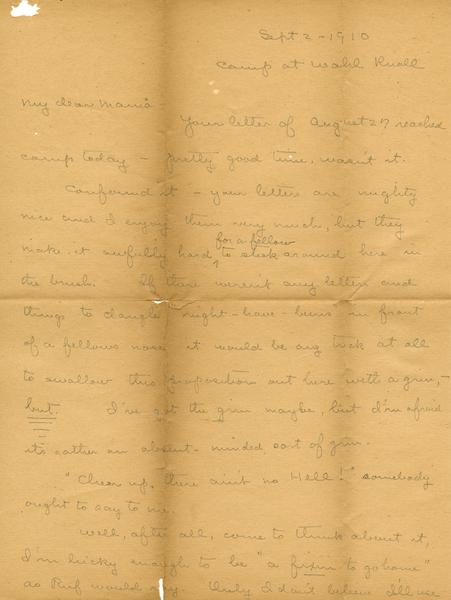 Sept 2 - 1910
Camp at Wahl Knoll
My dear Mama -
Your letter of August 27 reached
camp today - pretty good time, wasn't it.
Confound it - your letters are mighty
nice and I enjoy them very much, but they
make it awfully hard for a fellow to stick around here in
the brush. If there weren't any letters and
things to dangle might-have-beens in front
of a fellows nose it would be any trick at all
to swallow this proposition out here with a grin, -
but. I've got the grin maybe, but I'm afraid
it's rather an absent-minded sort of grin.
"Cheer up, there ain't no Hell!" somebody
ought to say to me.
Well, after all, come to think about it,
I'm lucky enough to be "a fixin to go home"
as Ruf would say. Only I don't believe I'll use